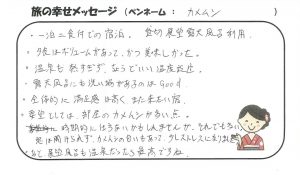 旅の幸せメッセージ (ペンネーム： カメムシ )
・一泊二食付での宿泊。 貸切展望露天風呂利用
・夕食はボリュームがあって、かつ美味しかった。
・温泉も熱すぎず、ちょうどいい温度だった。
・露天風呂にも洗い場があるのは Good.
・全体的に満足感は高く、また来たい宿。
・要望としては、対策のカメムシが多い点。
時期的に仕方ないかもしれませんが、それでも
窓は開けられず、カメムシの匂いもあって、少しストレスになりました
展望風呂も温泉だったら最高ですね。